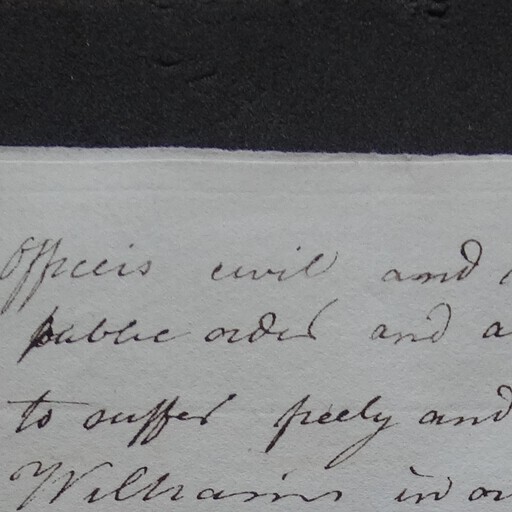 Officers civil and
public order and a
to suffer freely and
Williams in or